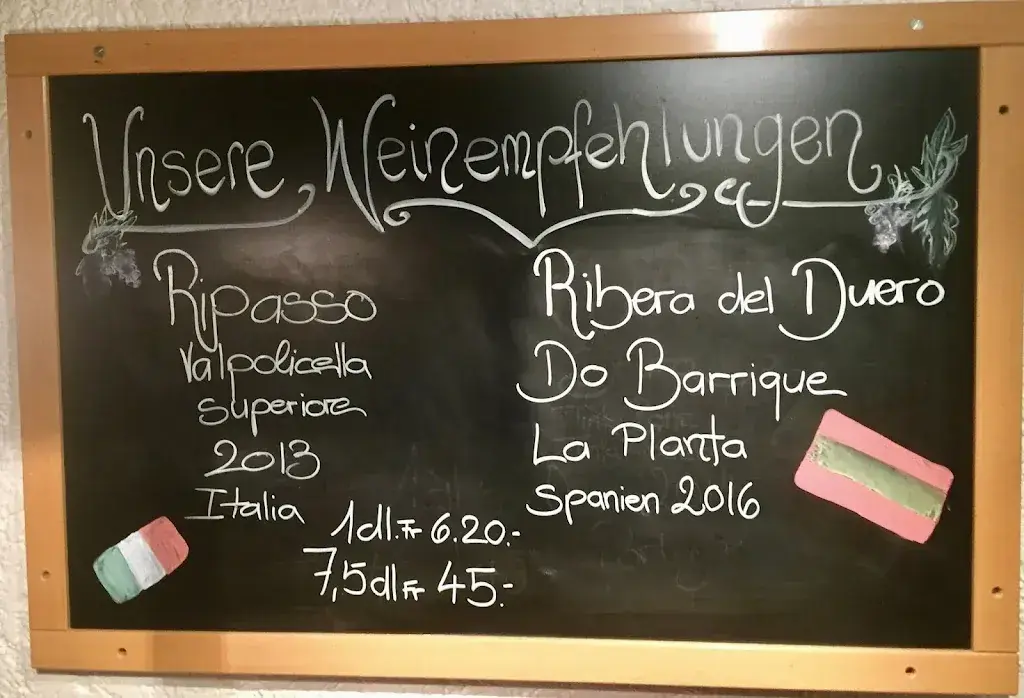 Unsere Weinempfehlungen
Ripasso
Valpolicella
Superiore
2013
Italia
1dl. Fr 6.20.-
7,5dl Fr 45.-
Ribera del Duero
Do Barrique
La Planta
Spanien 2016